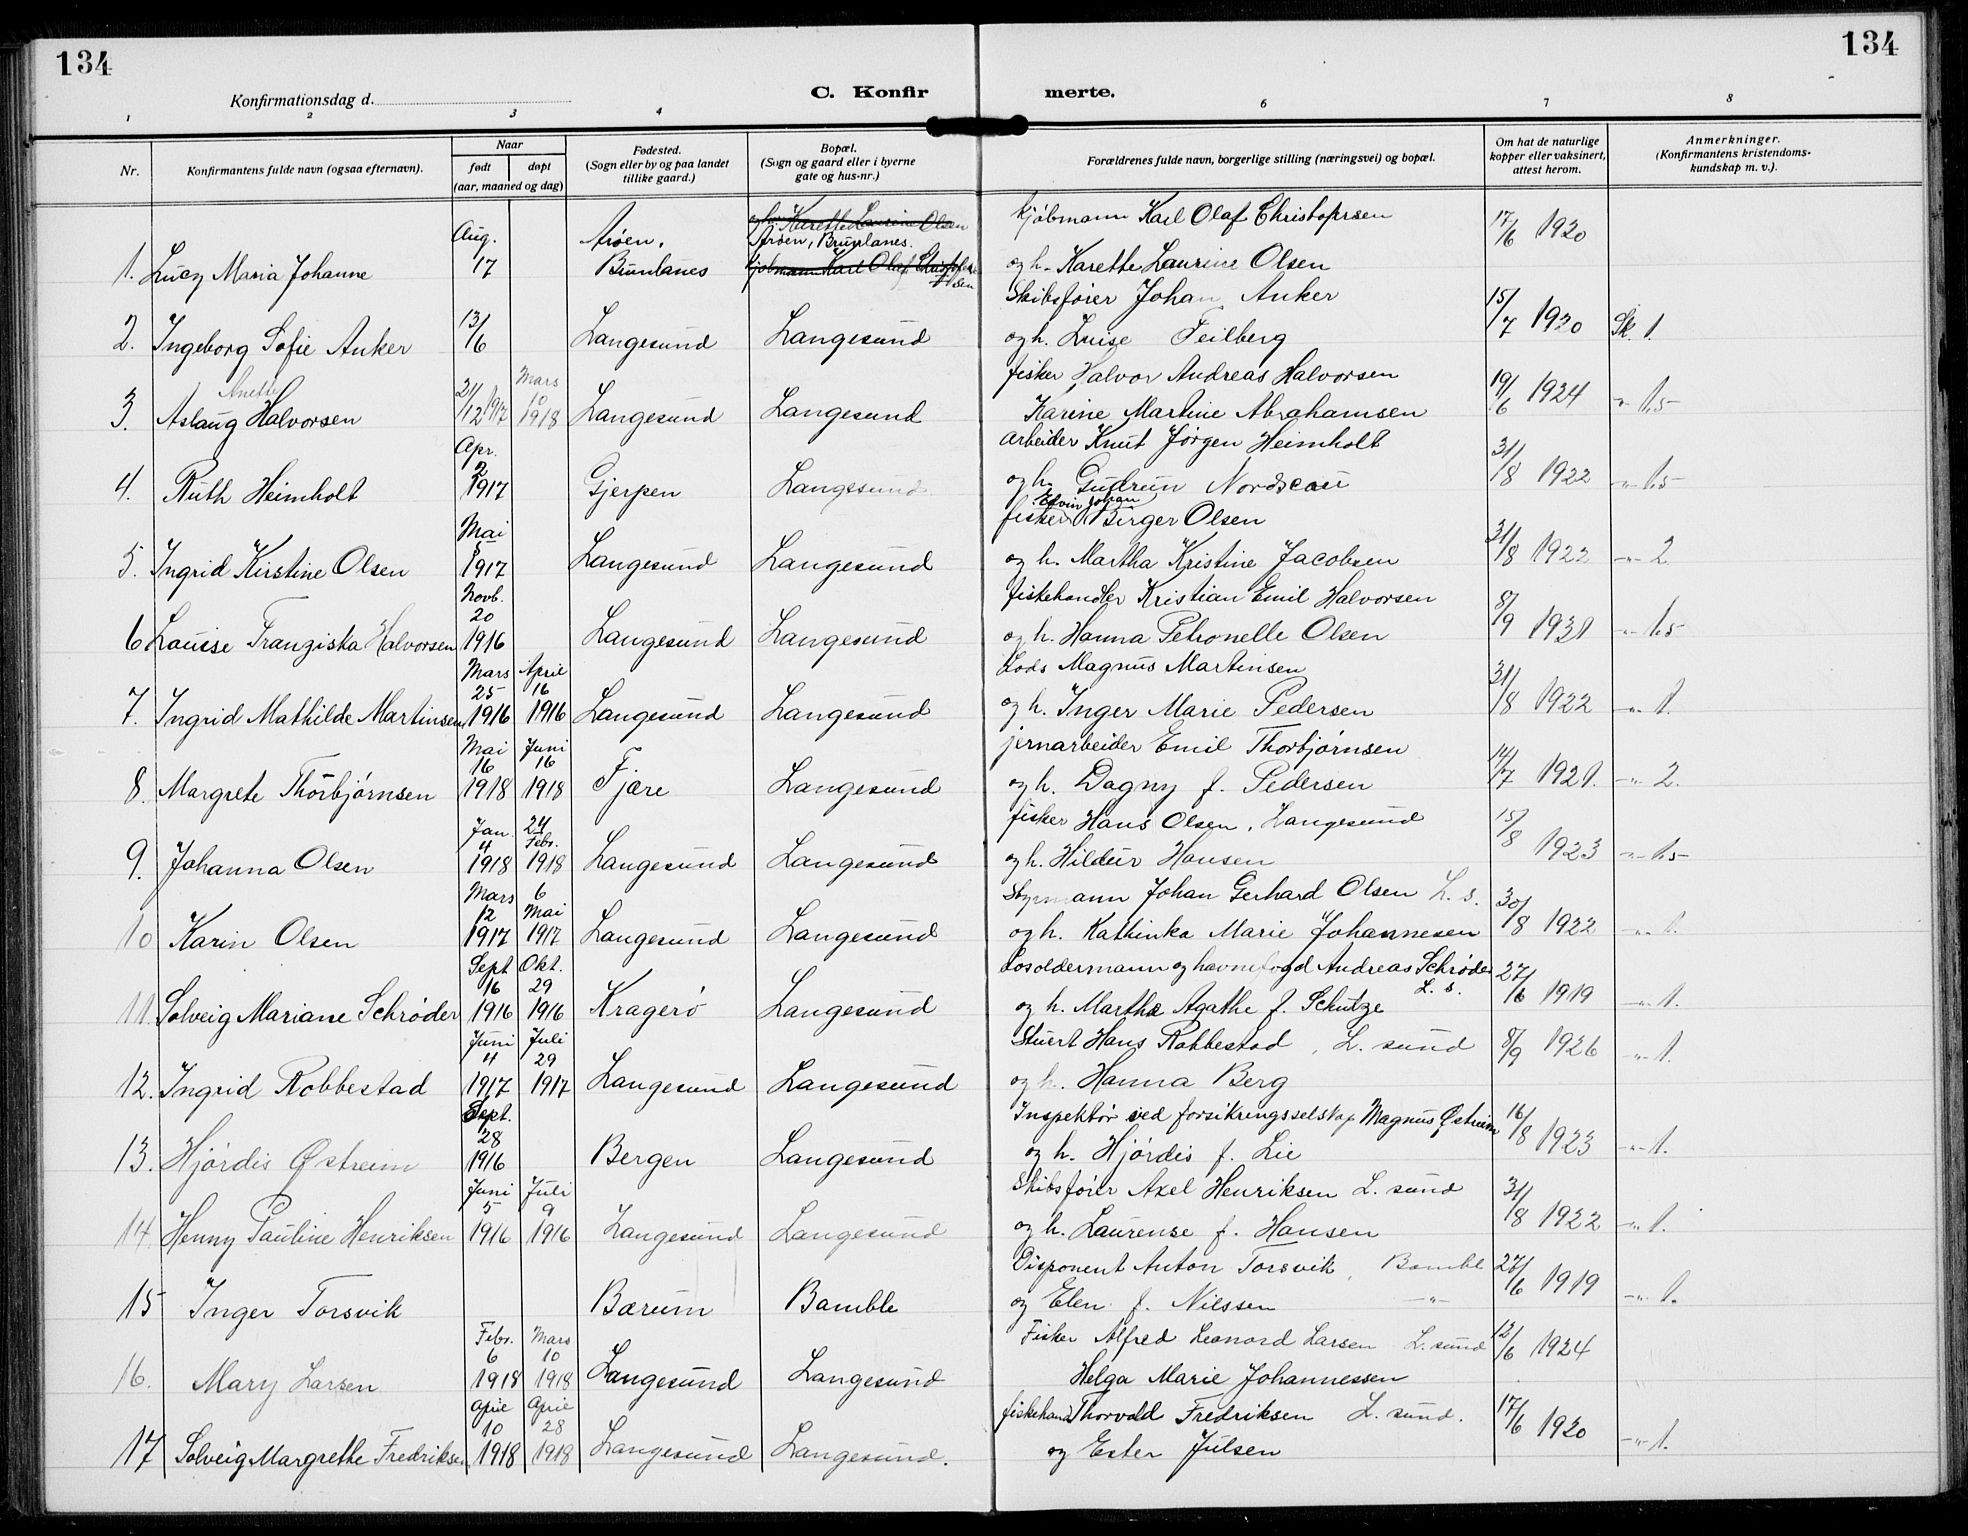 134
134
Konfirmationsdag d.
C. Konfir merte.
1 2 3 4 6 7 8
Nr.
Konfirmantens fulde navn (ogsaa efternavn).
Naar
født døpt
(aar, maaned og dag)
Fødested.
(Sogn eller by og paa landet
tillike gaard.)
Bopæl.
(Sogn og gaard eller i byerne
gate og hus-nr.)
Forældrenes fulde navn, borgerlige stilling (næringsvei) og bopæl.
Om hat de naturlige
kopper eller vaksinert,
attest herom.
Anmerkninger.
(Konfirmantens kristendoms-
kundskap m. v.).
og h. Karette Laurine Olsen kjøbmann Karl Olaf Christophersen 17/6 1920
Aug. Arøen, Arøen, Brunlanes.
1. Lucy Maria Johanne 17 Brunlanes kjøbmann Karl Olaf Christophersen og h. Karette Laurine Olsen
Skibsfører Johan Anker
2. Ingeborg Sofie Anker 13/6 Langesund Langesund og h. Luise Feilberg 15/7 1920 Sk. 1
Anette Mars fisker Halvor Andreas Halvorsen
3. Aslaug Halvorsen 21/12 1917 10 1918 Langesund Langesund Karine Martine Abrahamsen 19/6 1924 -"- 1.5
Apr. arbeider Knut Jørgen Heimholt
4. Ruth Heimholt 2 1917 Gjerpen Langesund og h. Gudrun 31/8 1922 -"- 1.5
Edvin Johan
Mai fisker Birger Olsen
5. Ingrid Kirstine Olsen 5 1917 Langesund Langesund og h. Martha Kristine Jacobsen 31/8 1922 -"- 2
Novb. fiskehandler Kristian Emil Halvorsen
20
6 Lauise Franziska Halvorsen 1916 Langesund Langesund og h. Hanna Petronelle Olsen 8/9 1921 -"- 1.5
Mars April Lods Magnus Martinsen
25 16
7. Ingrid Mathilde Martinsen 1916 1916 Langesund Langesund og h. Inger Marie Pedersen 31/8 1922 -"- 1.
Mai Juni jernarbeider Emil Thorbjørnsen
16 16
8. Margrete Thorbjørnsen 1918 1918 Fjære Langesund og h. Dagny f. Pedersen 14/7 1921. -"- 2.
Jan. 24 fisker Hans Olsen, Langesund
4 Febr.
9. Johanna Olsen 1918 1918 Langesund Langesund og h. Hildur Hansen 15/8 1923 -"- 1.5
Mars 6 Styrmann Johan Gerhard Olsen L. s.
12 Mai
10 Karin Olsen 1917 1917 Langesund Langesund og h. Kathinka Marie Johannesen 30/8 1922 -"- 1.
Sept Okt. Losoldermann og havnefogd Andreas Schrøder
16 29 L. s.
11. Solveig Mariane Schrøder 1916 1916 Kragerö Langesund og h. Martha Agathe f. Schutze 27/6 1919 -"- 1.
Juni Juli Stuert Hans Robbestad, L. sund
4 29
12. Ingrid Robbestad 1917 1917 Langesund Langesund og h. Hanna Berg 8/9 1926 -"- 1.
Sept. Inspektör ved forsikringsselskap Magnus Østreim
28
13. Hjördis Østreim 1916 Bergen Langesund og h. Hjördis f. Lie 16/8 1923 -"- 1.
Juni Juli Skibsförer Axel Henriksen L. sund
5 9
14. Henny Pauline Henriksen 1916 1916 Langesund Langesund og h. Laurense f. Hansen 31/8 1922 -"- 1.
Disponent Anton Torsvik, Bamble
15 Inger Torsvik Bærum Bamble og Elen f. Nilssen -"- 27/6 1919 -"- 1.
Febr. Mars Fisker Alfred Leonard Larsen L. sund
6 10
16. Mary Larsen 1918 1918 Langesund Langesund Helga Marie Johannessen 12/6 1924
April April fiskehand Thorvald Fredriksen L. sund.
10 28
17 Solveig Margrethe Fredriksen 1918 1918 Langesund Langesund. og Ester Julsen 17/6 1920 -"- 1.